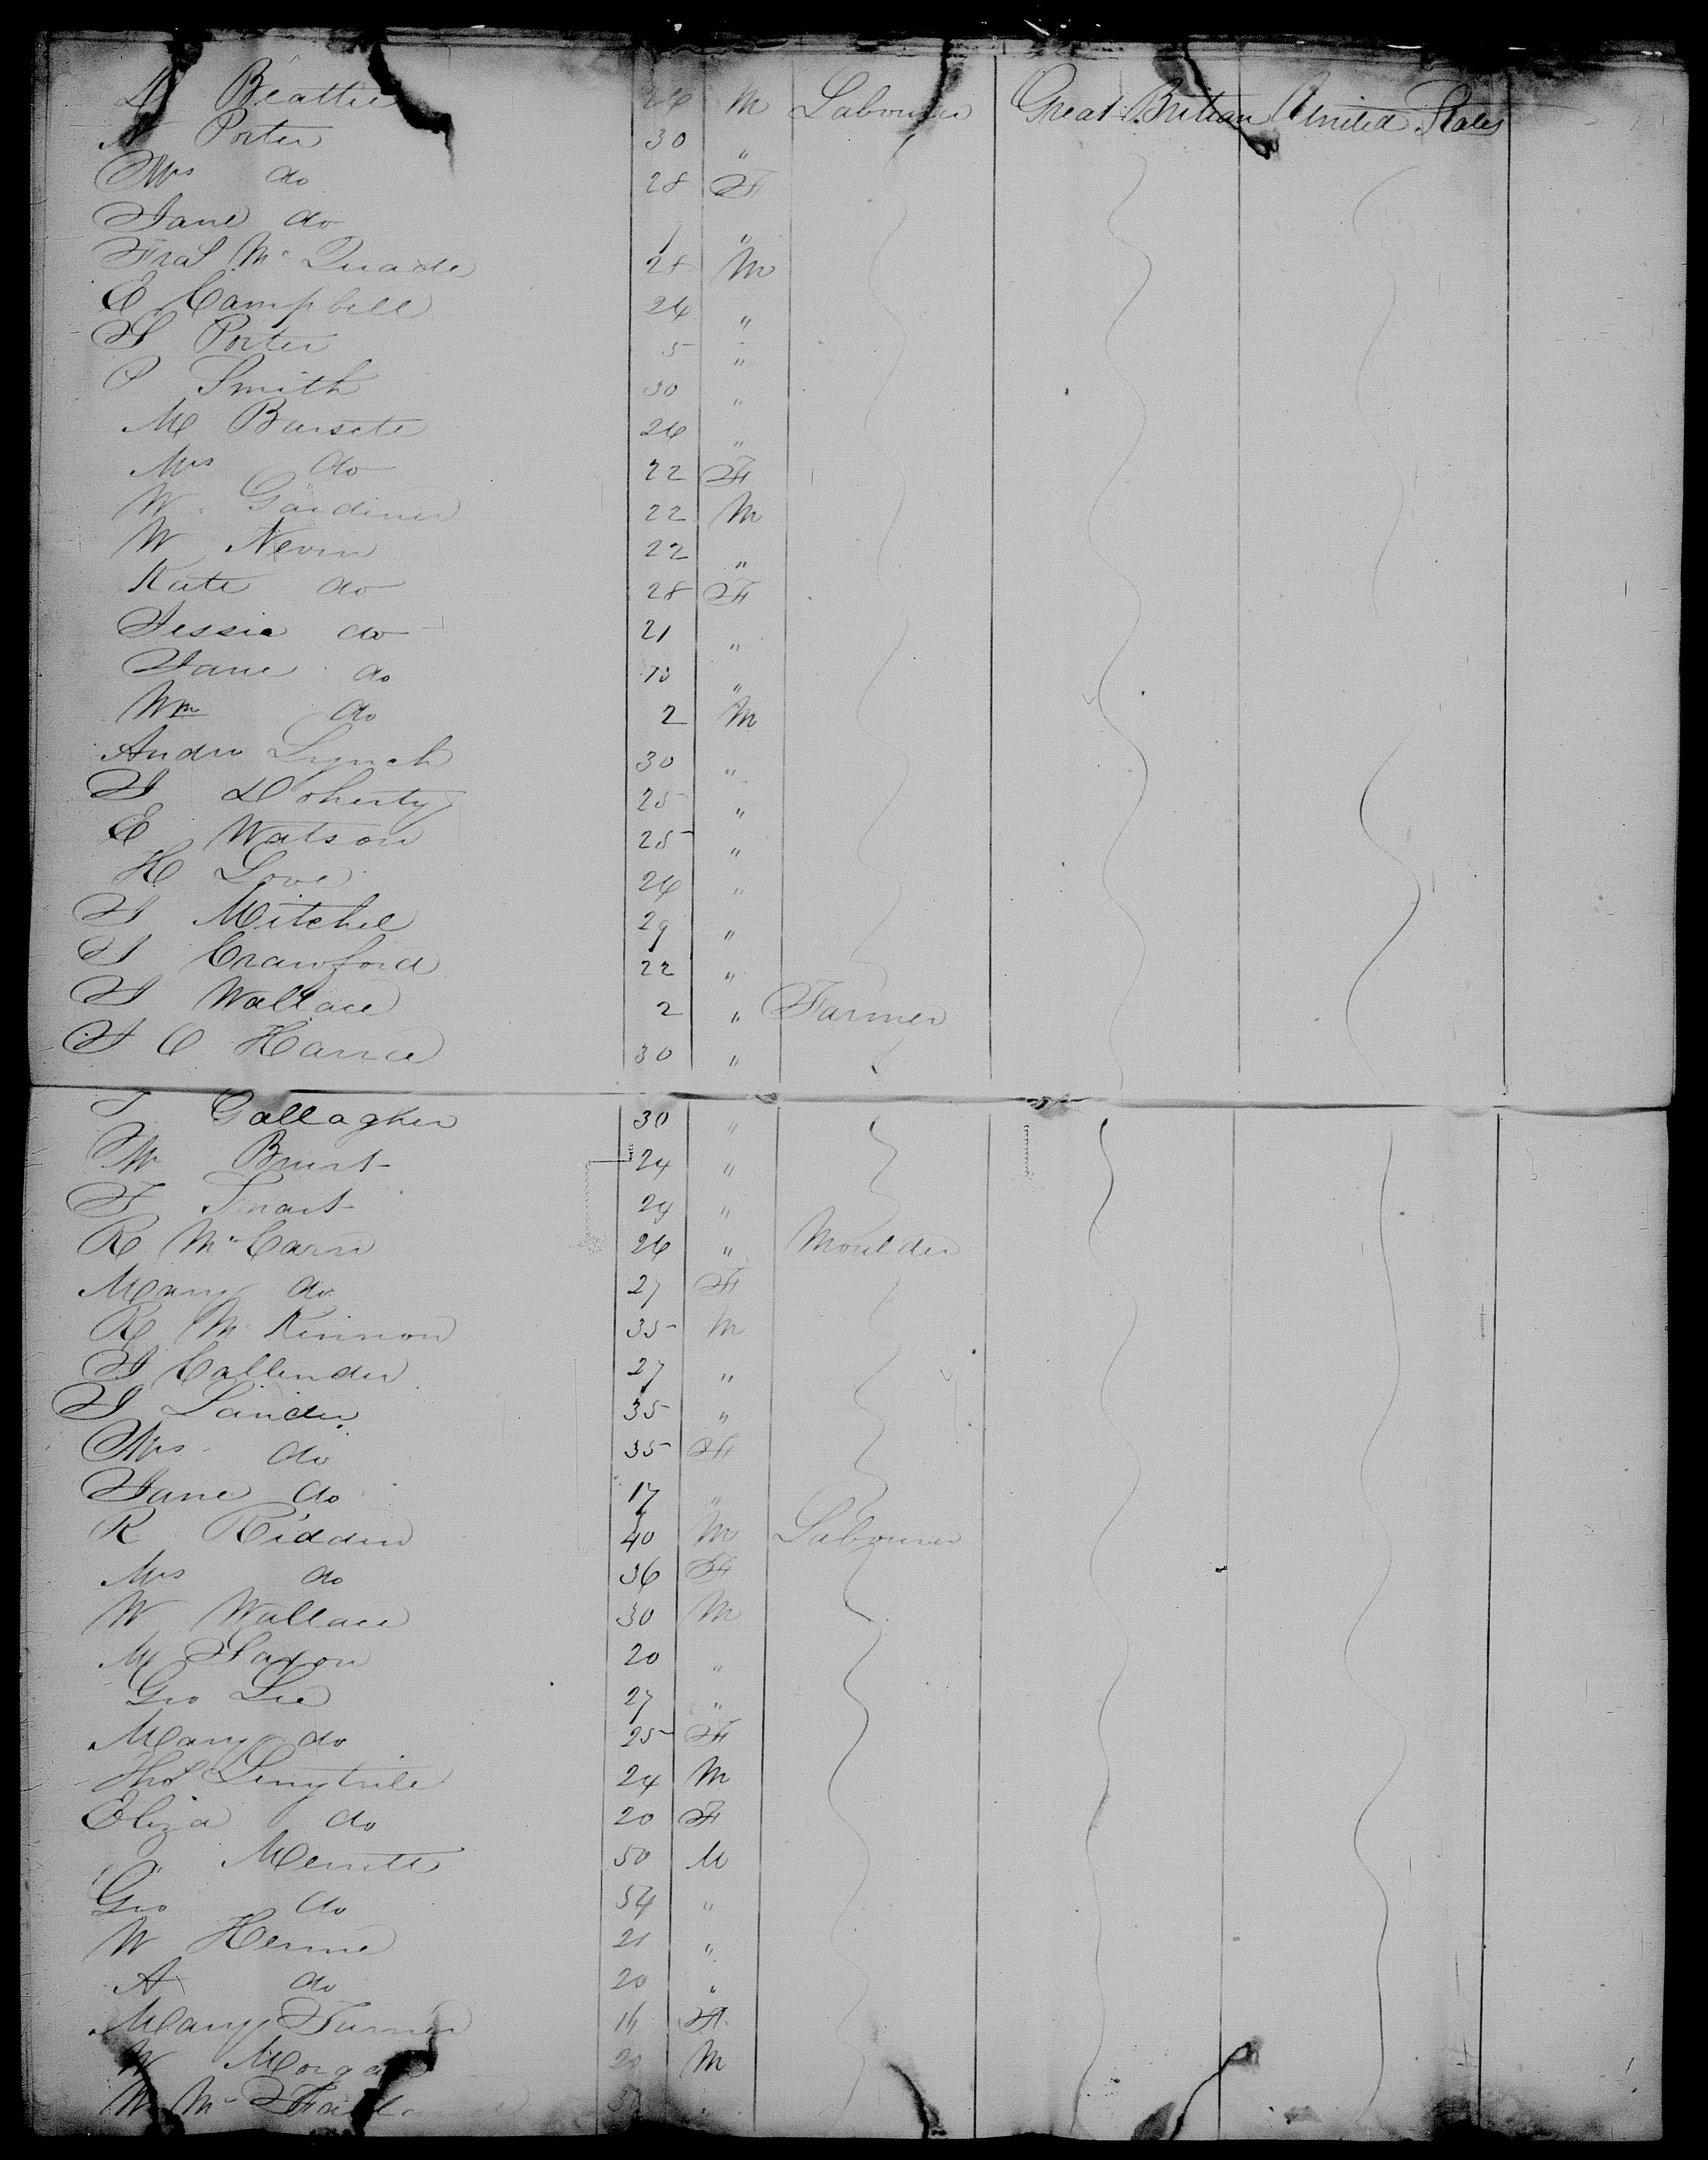 D Beattie 26 M Labourer Great Britian United States
N Porter 30 "
Mrs do 28 F
Jane do 1 "
Fras McQuade 28 M
E Campbell 24 "
H Porter 5 "
P Smith 30 "
M Barsete 26 "
Mrs do 22 F
W Gardiner 22 M
W Nevin 22 "
Kate do 28 F
Jessie do 21 "
Jane do 13 "
Wm do 2 M
Andw Lynch 30 "
J Doherty 25 "
E Watson 25 "
H Love 26 "
J Mitchel 29 "
J Crawford 22 "
J Wallace 2 " Farmer
J O Hara 30 "
T Gallagher 30 "
W 24 "
F Smart 24 "
R McCarn 26 " Moulder
Mary do 27 F
R McKinnon 35 M
J Callender 27 "
J Lander 35 "
Mrs do 35 F
Jane do 17 "
R Ridden 40 M Labourer
Mrs do 36 F
W Wallace 30 M
M Saxon 20 "
Geo Lee 27 "
Mary do 25 F
Thos 24 M
Eliza do 20 F
" Merritt 50 M
Geo do 54 "
W Herne 21 "
A do 20 "
Mary Turner 16 F
W Morga 20 M
W Mc